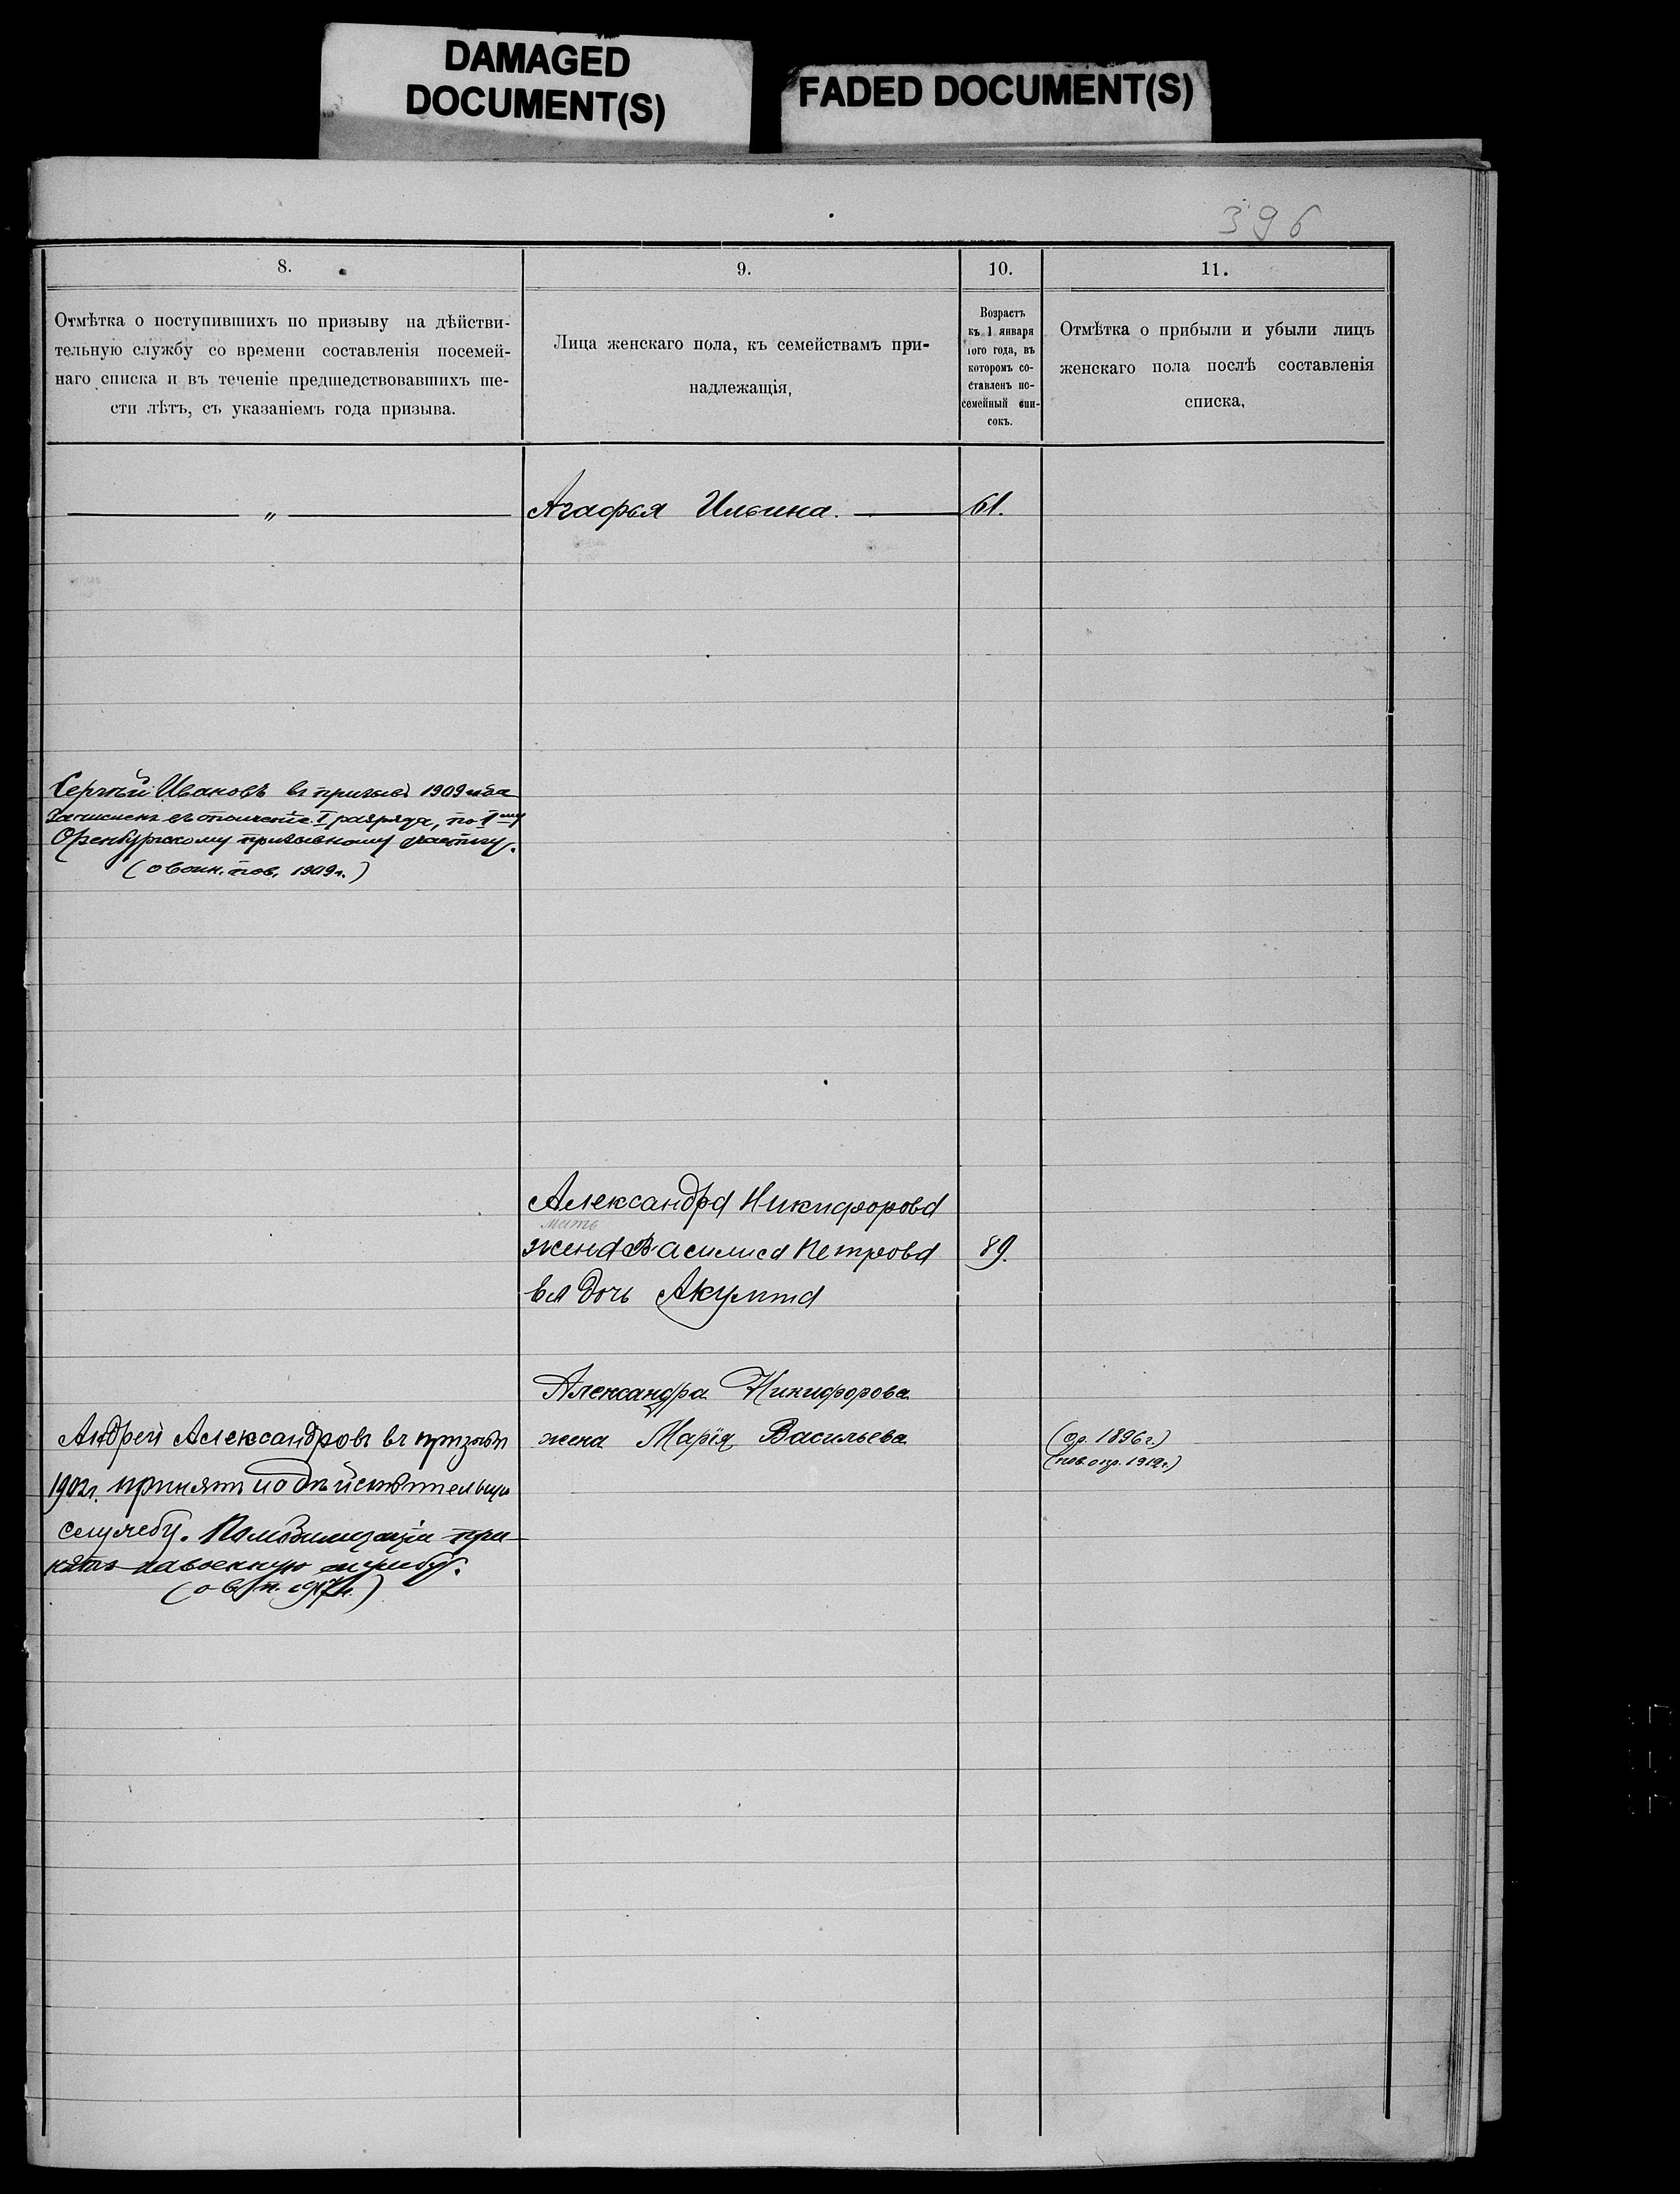 DAMAGED
DOCUMENT(S)
FADED DOCUMENT(S)
396
8.
Отмѣтка о поступившихъ по призыву на дѣйстви-
тельную службу со времени составленія посемей-
наго списка и въ теченіе предшедствовавшихъ ше-
сти лѣтъ, съ указаніемъ года призыва.
9.
Лица женскаго пола, къ семействамъ при-
надлежащія,
10.
Возрастъ
къ 1 января
того года, въ
которомъ со-
ставленъ по-
семейный спи-
сокъ.
11.
Отмѣтка о прибыли и убыли лицъ
женскаго пола послѣ составленія
списка,
— „ —
Агафья Ильина. — 61.
Сергѣй Ивановъ въ призывъ 1909 года
Зачисленъ въ ополченіе I разряда, по I му
Оренбургскому призывному участку.
(о воин. пов. 1909 г.)
Александра Никифорова
мать
жена Василиса Петрова 89.
ея дочь
Александра Никифорова
жена Марія Васильева
(ор. 1896 г.)
Андрей Александровъ въ призывъ
1902 г. принятъ на дѣйствительную
службу. По мобилизаціи при-
нятъ на военную службу.